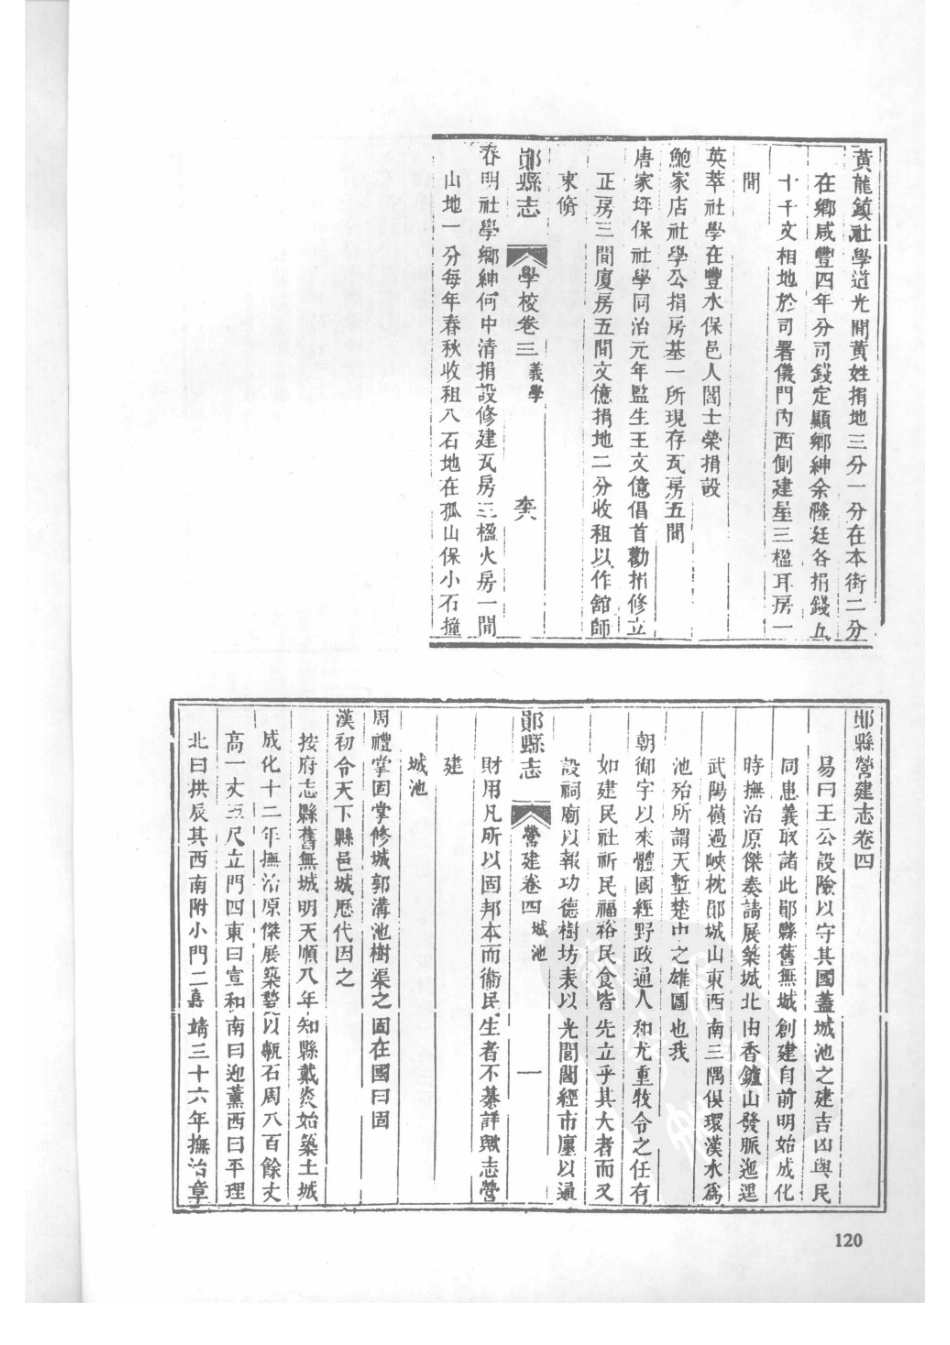 黃龍鎮社學道光閒黃姓捐地三分一分在本街二分
在鄉咸豐四年分司錢定顯鄉紳余隆廷各捐錢五
十千文相地於司署儀門內西側建屋三楹耳房一
間
英萃社學在豐水保邑人閻士榮捐設
鮑家店社學公捐房基一所現存瓦房五間
唐家坪保社學同治元年監生王文億倡首勸捐修立
正房三間廈房五間文億捐地二分收租以作館師
束脩
鄖縣志 學校卷三 義學
春明社學鄉紳何中清捐設修建瓦房三楹火房一間
山地一分每年春秋收租八石地在孤山保小石撞
鄖縣營建志卷四
易曰王公設險以守其國蓋城池之建吉凶與民
同患義取諸此鄖縣舊無城創建自前明始成化
時撫治原傑奏請展築城北由香鑪山發脈迤邐
武陽嶺過峽枕鄖城山東西南三隅俱環漢水為
池殆所謂天塹楚中之雄圖也我
朝御宇以來體國經野政通人和尤重牧令之任有
如建民社祈民福裕民食皆先立乎其大者而又
設祠廟以報功德樹坊表以光閭閻經市廛以通
鄖縣志 營建卷四 城池 一
財用凡所以固邦本而衞民生者不綦詳歟志營
建
城池
周禮掌固掌修城郭溝池樹渠之固在國曰固
漢初令天下縣邑城歷代因之
按府志縣舊無城明天順八年知縣戴炎始築土城
成化十二年撫治原傑展築甃以甎石周八百餘丈
高一丈五尺立門四東曰宣和南曰迎薰西曰平理
北曰拱辰其西南附小門二嘉靖三十六年撫治章
120